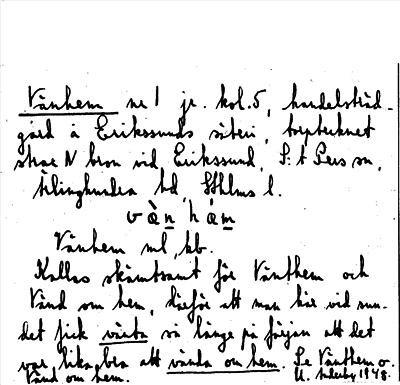 Vänhem nr 1 jr. kol. 5, handelsträd-
gård å Erikssunds säteri, torptecknet
strax N bron vid Erikssund, S:t Pers sn,
Ärlinghundra hd, Sthlms l.
Vänhem ml, kb.
Kallas skämtsamt för Vänthem och
Vänd om hem, därför att man här vid sun-
det fick vänta så länge på färjan att det
var lika bra att vända om hem. Se Vänthem o.
Vänd om hem. 1948.